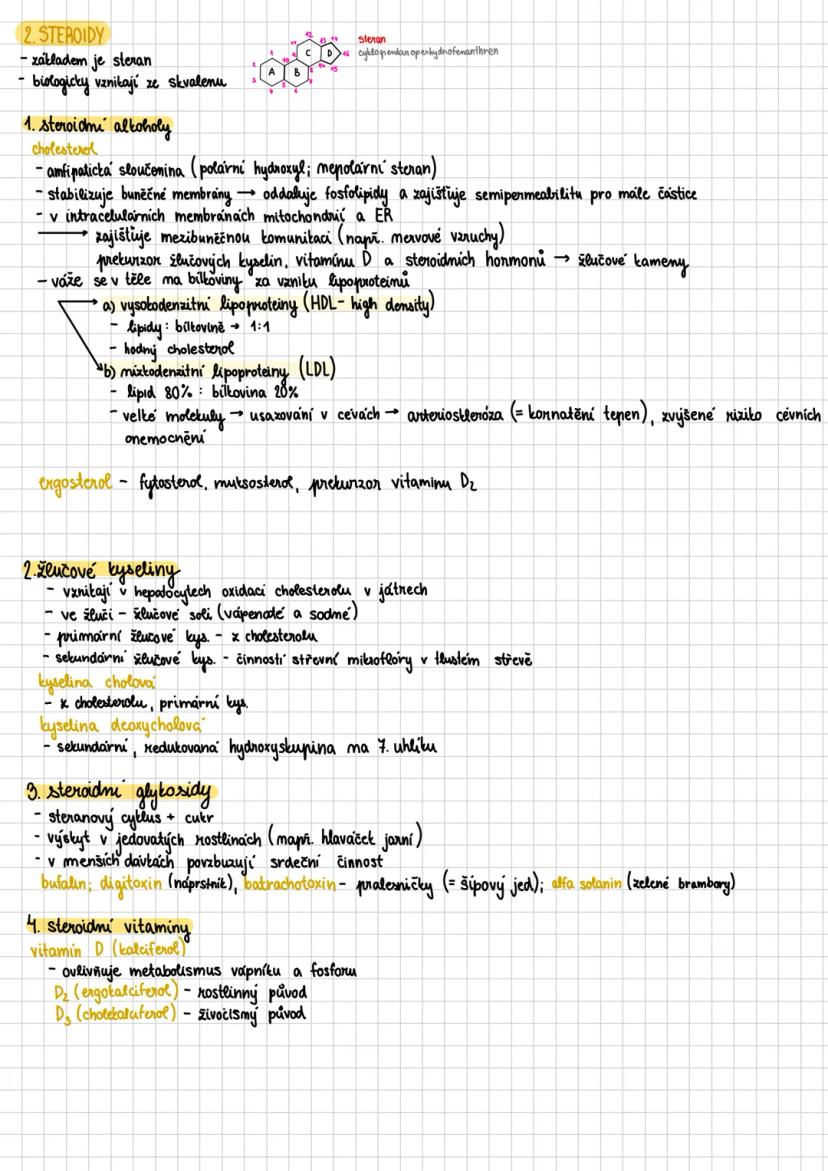 2. STEROIDY
- základem je steran
- biologicky vznikají ze skvalenu
steran
cyklopentanoperhydrofenanthren
A B C D
1. steroidní alkoholy
cholesterol
- amfipatická sloučenina (polární hydroxyl; nepolární steran)
- stabilizuje buněčné membrány → oddaluje fosfolipidy a zajišťuje semipermeabilitu pro malé částice
- v intracelulárních membránách mitochondrií a ER
→ zajišťuje mezibuněčnou komunikaci (např. nervové vzruchy)
prekurzor žlučových kyselin, vitamínu D a steroidních hormonů → žlučové kameny
- váže se v těle na bílkoviny za vzniku lipoproteinů
a) vysokodenzitní lipoproteiny (HDL- high density)
- lipidy : bílkovině → 1:1
- hodný cholesterol
b) nízkodenzitní lipoproteiny (LDL)
- lipid 80% : bílkovina 20%
- velké molekuly → usazování v cévách → arterioskleróza (= kornatění tepen), zvýšené riziko cévních
onemocnění
ergosterol - fytosterol, mykosterol, prekurzor vitaminu D₂
2. žlučové kyseliny
- vznikají v hepatocytech oxidací cholesterolu v játrech
- ve žluči - žlučové soli (vápenaté a sodné)
- primární žlučové kys. - z cholesterolu
- sekundární žlučové kys. - činností střevní mikroflóry v tlustém střevě
kyselina cholová
- z cholesterolu, primární kys.
kyselina deoxycholová
- sekundární, redukovaná hydroxyskupina na 7. uhlíku
3. steroidní glykosidy
- steranový cyklus + cukr
- výskyt v jedovatých rostlinách (např. hlaváček jarní)
- v menších dávkách povzbuzují srdeční činnost
bufalin; digitoxin (náprstník), batrachotoxin - pralesničky (= šípový jed); alfa solanin (zelené brambory)
4. steroidní vitamíny
vitamín D (kalciferol)
- ovlivňuje metabolismus vápníku a fosforu
D₂ (ergokalciferol) - rostlinný původ
D₃ (cholekalciferol) - živočišný původ